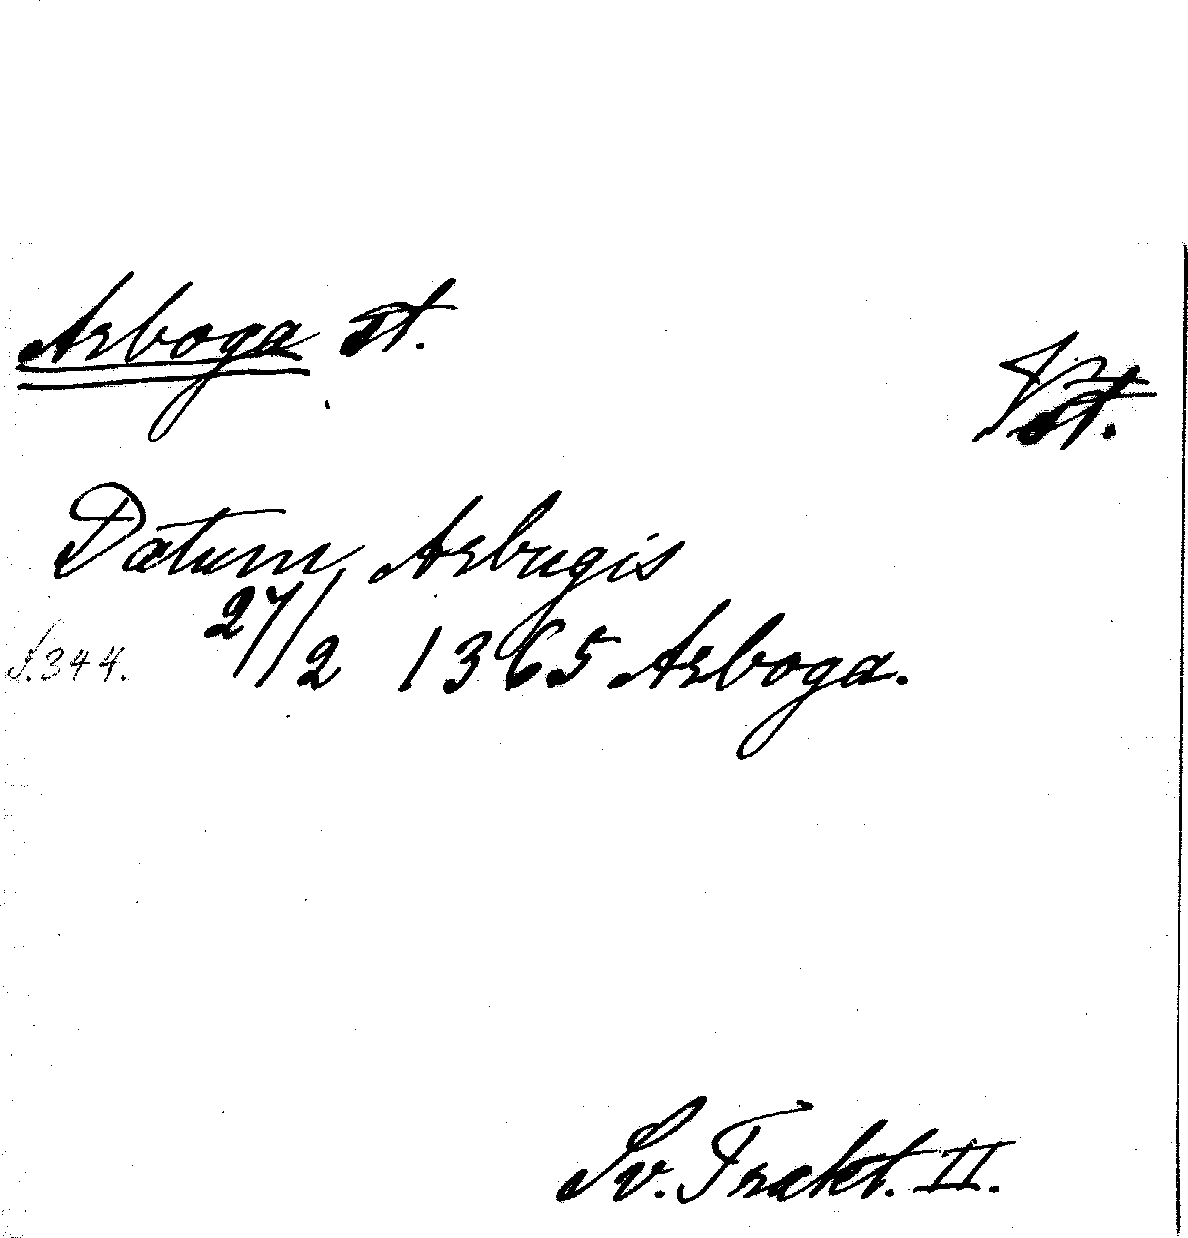 Arboga st.
st.
Datum Arbugis
27/2 1365 Arboga.
S. 344.
Sv. Trakt. II.